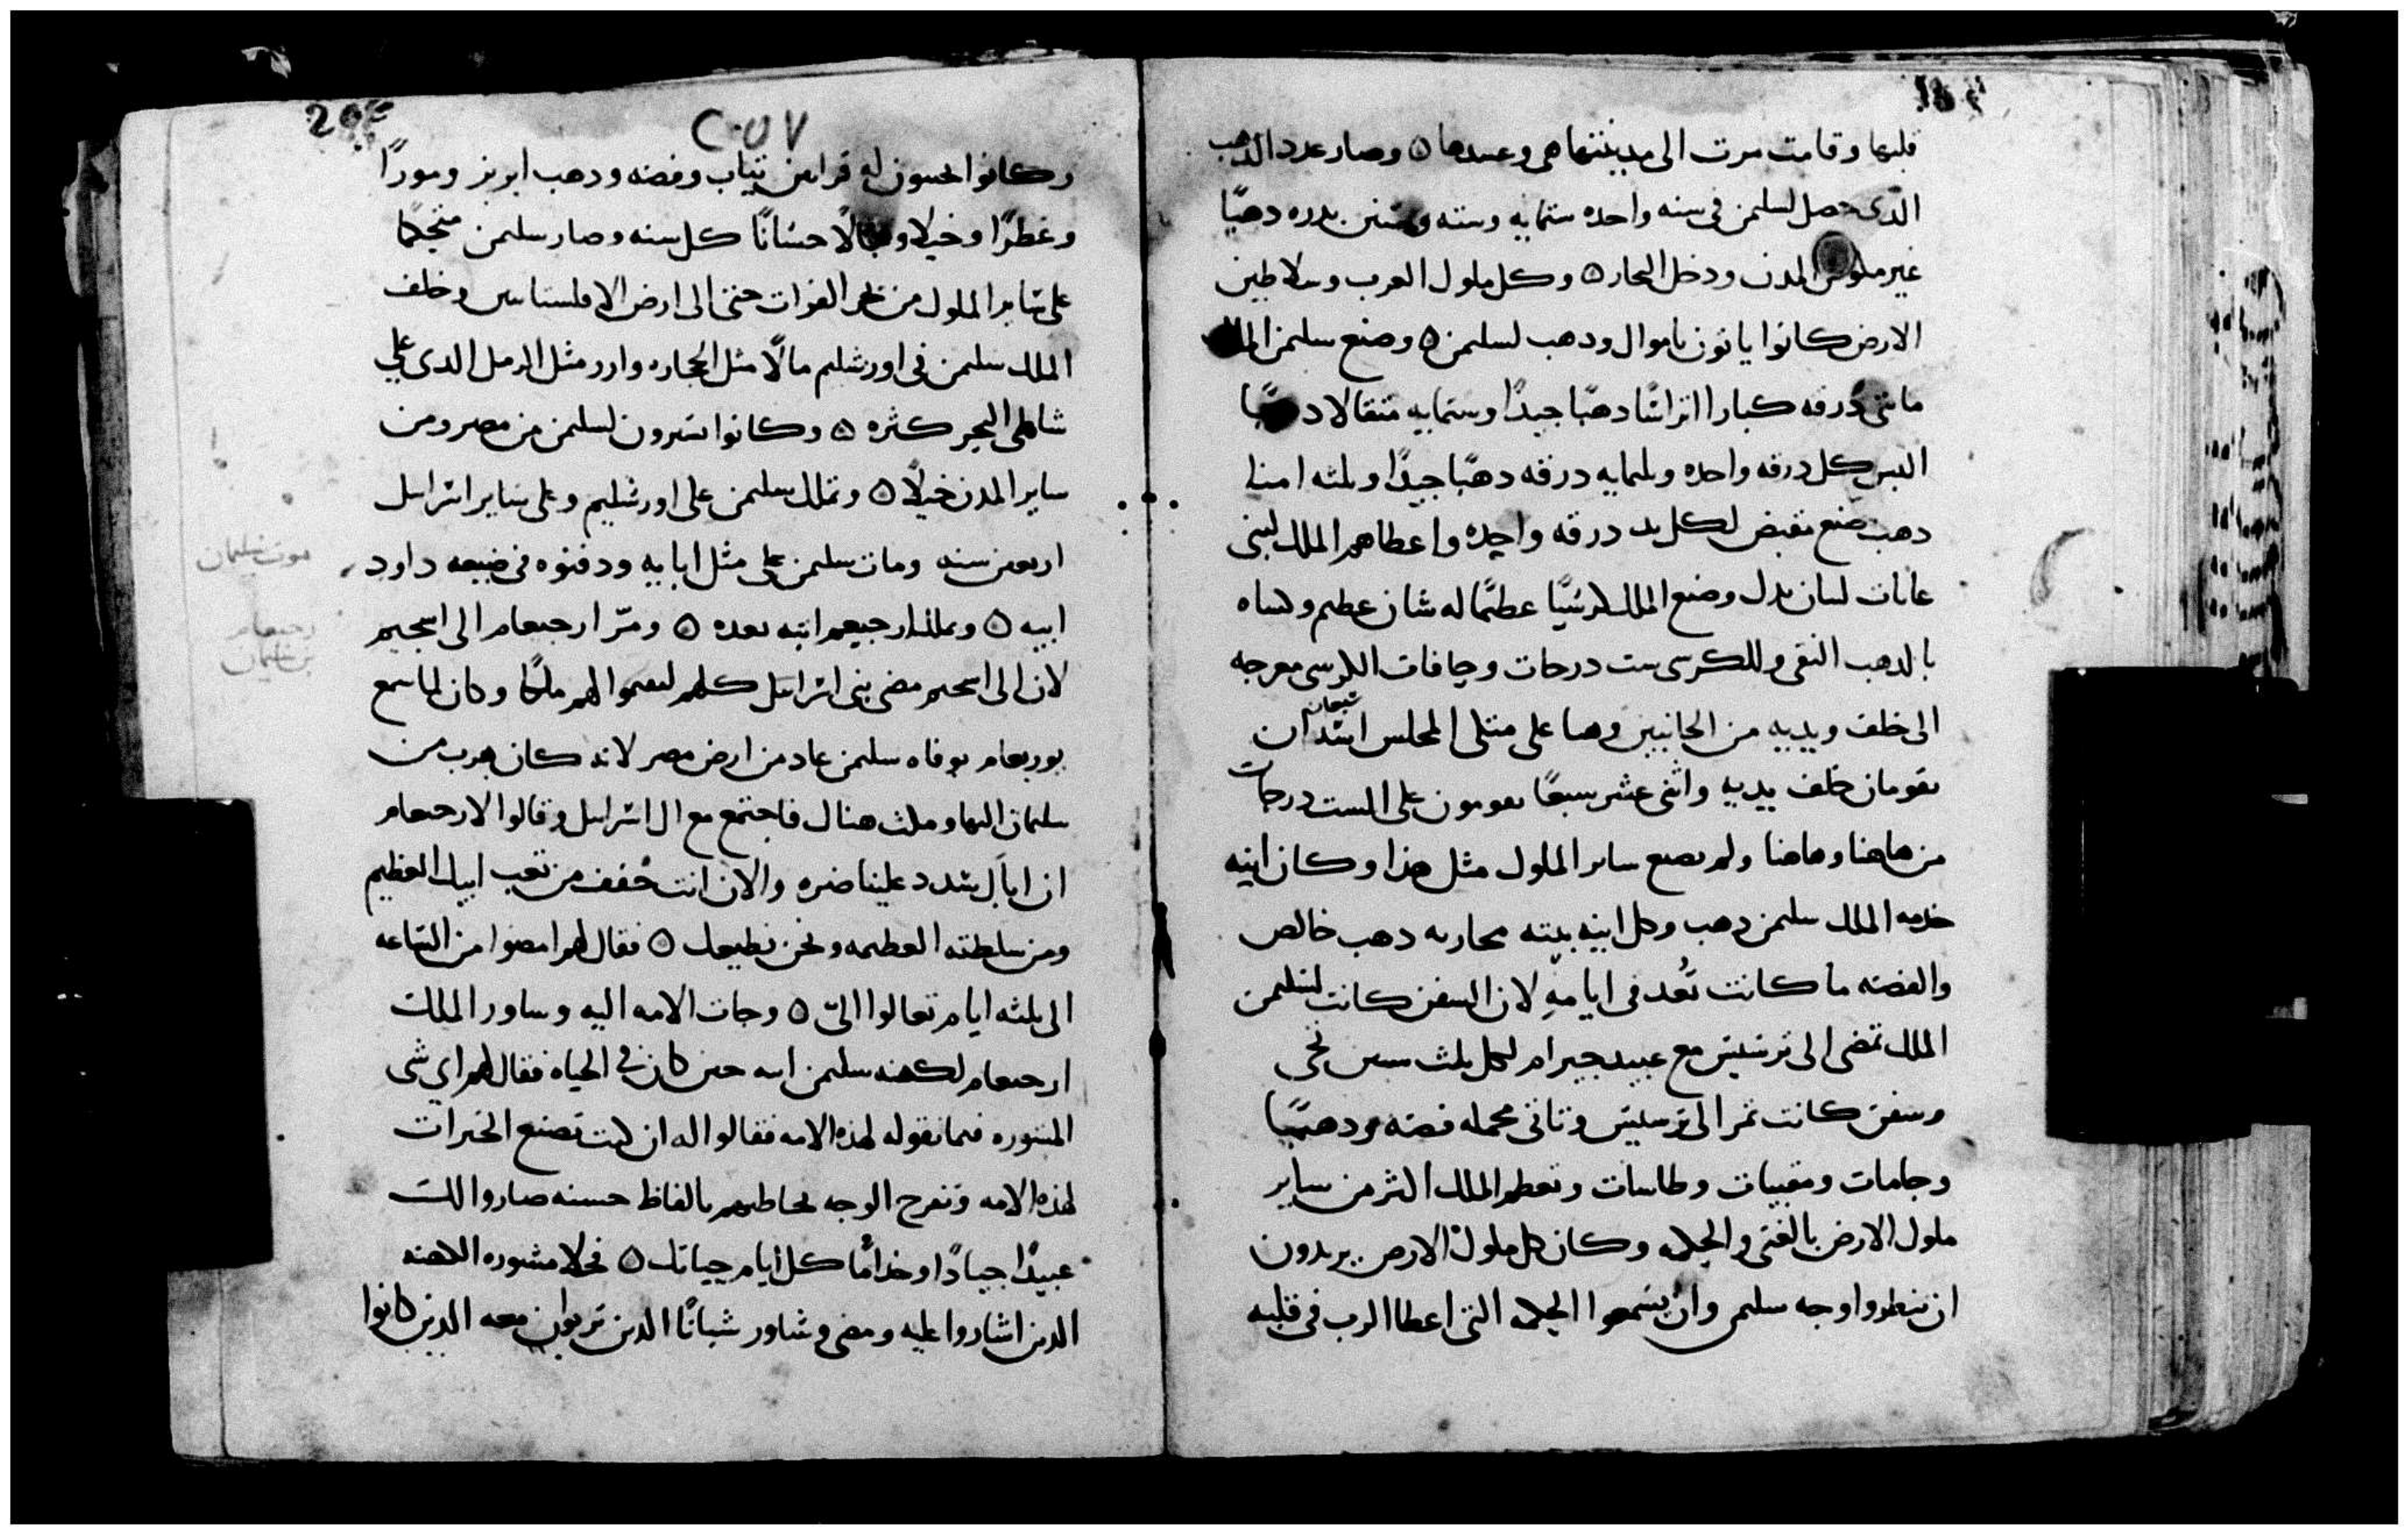 قلبها وقامت مرت الى مدينتها هى وعبيدها ٥ وصار عدد الذهب
الذى حصل لسليمن فى سنه واحده ستمايه وسته وستين بدره دهبًا
غير ملوك المدن ودخل التجار ٥ وكل ملوك العرب وسلاطين
الارض كانوا ياتون باموال ودهب لسليمن ٥ وصنع سليمن الملك
مائتى درقه كبارا اتراسًا دهبًا جيدًا وستمايه مثقالا دهبًا
البس كل درقه واحده وثلثمايه درقه دهبًا جيدًا وثلثه امنا
دهب صنع مقبض لكل يد درقه واحده واعطاهم الملك لبنى
غابات لبنان وصنع الملك كرسيًا عظمًا له شان عظيم وكساه
بالدهب النقى وللكرسى ست درجات وحافات الكرسى معوجه
الى خلف ويديه من الجانبين وهما على متكى المجلس اسدان
سبعان
يقومان خلف يديه واثنى عشر سبعًا يقومون على الست درجات
من هاهنا وهاهنا ولم يصنع ساير الملوك مثل هذا وكان انيه
خدمه الملك سليمن دهب وكل انيه بيته دهب خالص
والفضه ما كانت تُعد فى ايامه لان السفن كانت لسليمن
الملك تمضى الى ترسيس مع عبيد حيرام لكل ثلث سنين تجى
وسفن كانت تمر الى ترسيس وتاتى محمله فضه ودهبًا
وجامات ومقبيات وطاسات وتعظم الملك اكثر من ساير
ملوك الارض بالغنى والحكمه وكان كل ملوك الارض يريدون
ان ينظروا وجه سليمن وان يسمعوا الحكمه التى اعطا الرب فى قلبه
204
C·UV
وكانوا يجيبون له قرابين تياب وفضه ودهب ابريز ومورًا
وعطرًا وخيلا وبغالًا حسانًا كل سنه وصار سليمن
على ساير الملوك من نهر الفرات حتى الى ارض الافلستانيين وخلف
الملك سليمن فى اورشليم مالًا مثل الحجاره وارز مثل الرمل الدى على
شاطى البحر كثره ٥ وكانوا يشرون لسليمن من مصر ومن
ساير المدن خيلًا ٥ وتملك سليمن على اورشليم وعلى ساير اسرايل
اربعين سنه ومات سليمن على مثل ابايه ودفنوه فى ضيعه داود
موت سليمان
ابيه ٥ وملك ارحبعم ابنه بعده ٥ ومرّ ارحبعام الى اسحيم
رحبعام
بن سليمان
لان الى اسحيم مضى بنى اسرايل كلهم ليقيموا لهم ملكًا وكان لما سمع
يوربعام بوفاه سليمن عاد من ارض مصر لانه كان هرب من
سليمان اليها ومكث هناك فاجتمع مع ال اسرايل وقالوا لارحبعام
ان اباك شدد علينا ضره والان انت خفف من تعب ابيك العظيم
ومن سلطته العظيمه ونحن نطيعك ٥ فقال لهم امضوا من الساعه
الى ثلثه ايام تعالوا الىّ ٥ وجات الامه اليه وساور الملك
ارحبعام لكهنه سليمن ابيه حين كان فى الحياه فقال لهم اى شى
المشوره فيما نقوله لهذه الامه فقالوا له ان كنت تصنع الخيرات
لهذه الامه وتفرح الوجه تخاطبهم بالفاظ حسنه صاروا لك
عبيدًا جيادًا وخدامًا كل ايام حياتك ٥ فخلا مشوره الكهنه
الدين اشاروا عليه ومضى وشاور شبانًا الدين تربوا معه الدين كانوا